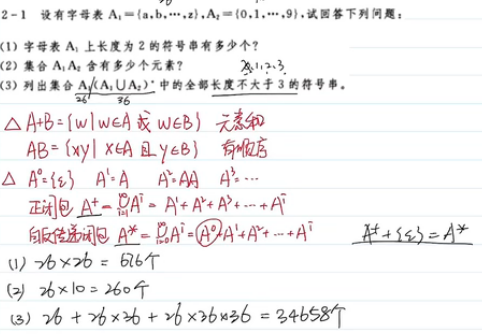 2-1 设有字母表 A₁={a,b,…,z},A₂={0,1,…,9},试回答下列问题:
(1) 字母表 A₁ 上长度为 2 的符号串有多少个?
(2) 集合 A₁A₂ 含有多少个元素?
(3) 列出集合 A₁(A₁∪A₂)* 中的全部长度不大于 3 的符号串。
26 36
△ A+B={w|w∈A 或 w∈B} 元素和
AB={xy|x∈A 且 y∈B} 有顺序
△ A⁰={ε} A¹=A A²=AA A³=…
正闭包 A⁺=⋃Aⁱ=A¹+A²+A³+…+Aⁱ
自反传递闭包 A*=⋃Aⁱ=A⁰+A¹+A²+…+Aⁱ A⁺+{ε}=A*
(1) 26×26=676个
(2) 26×10=260个
(3) 26+26×36+26×36×36=34658个